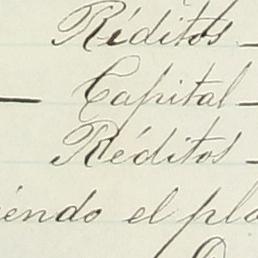 Réditos
Capital
Réditos
iendo el pla